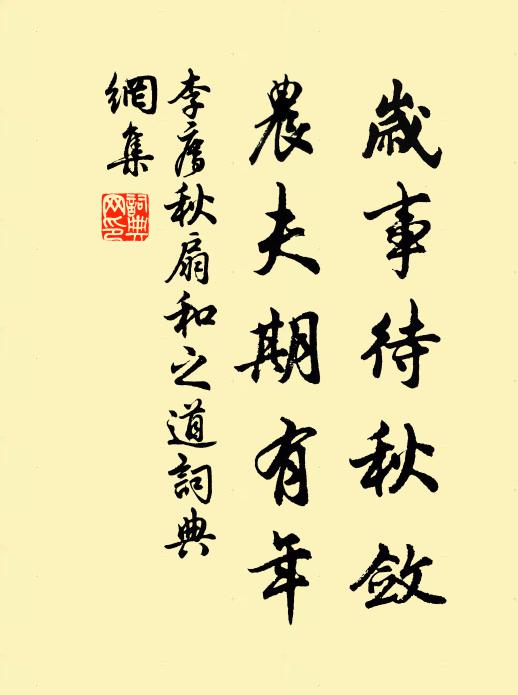 歲事待秋斂
農夫期有年
李廌秋扇和之道詞典
網集
詞典
网印